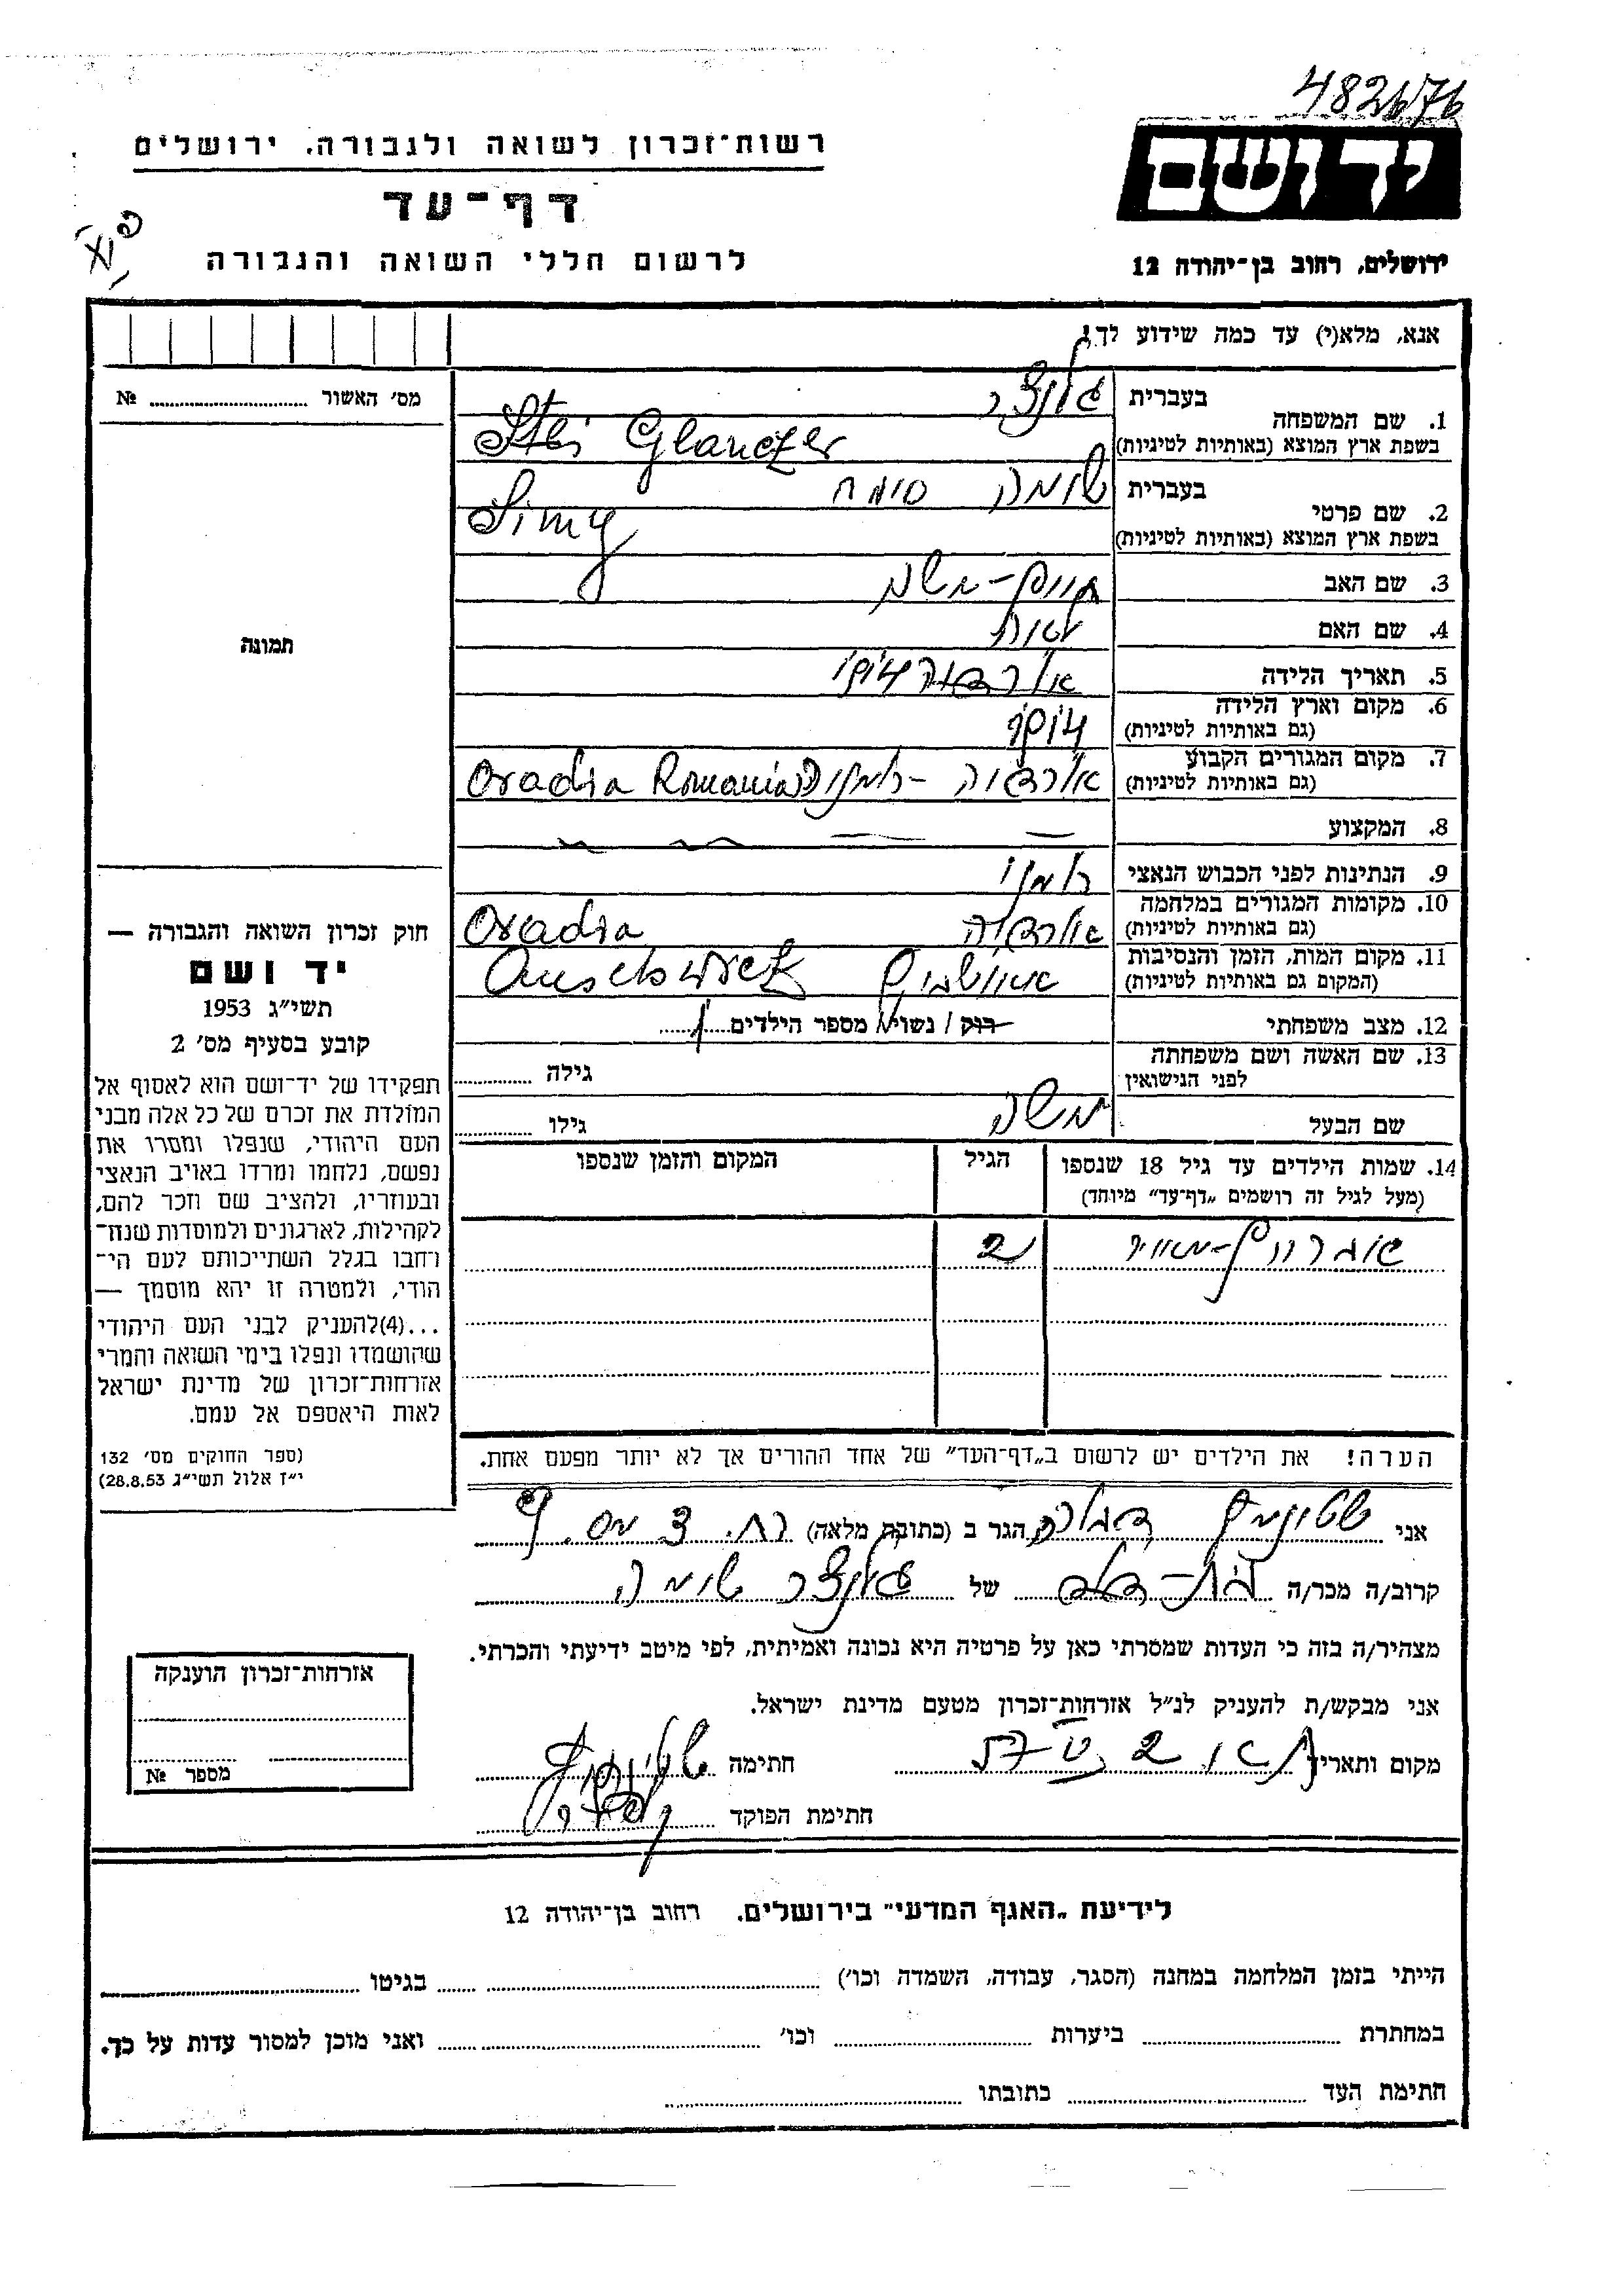 482676
רשות־זכרון לשואה ולגבורה, ירושלים
יד ושם
דף־עד
לרשום חללי השואה והגבורה
ירושלים, רחוב בן־יהודה 12
אנא, מלא(י) עד כמה שידוע לך
מס׳ האשור № 
1. שם המשפחה בעברית גלנצר
בשפת ארץ המוצא (באותיות לטיניות) Glanczer
2. שם פרטי בעברית שימה סימה
בשפת ארץ המוצא (באותיות לטיניות) Simy
3. שם האב חיים-משה
4. שם האם
5. תאריך הלידה
6. מקום וארץ הלידה
(גם באותיות לטיניות)
7. מקום המגורים הקבוע
(גם באותיות לטיניות) Oradia Romania
8. המקצוע
9. הנתינות לפני הכבוש הנאצי רומני
10. מקומות המגורים במלחמה
(גם באותיות לטיניות) Oradia
11. מקום המות, הזמן והנסיבות
(המקום גם באותיות לטיניות)
12. מצב משפחתי רוק / נשוי מספר הילדים 1
13. שם האשה ושם משפחתה
לפני הנישואין גילה
שם הבעל משה גילו
תמונה
14. שמות הילדים עד גיל 18 שנספו הגיל המקום והזמן שנספו
(מעל לגיל זה רושמים „דף־עד״ מיוחד)
2
חוק זכרון השואה והגבורה —
יד ושם
תשי״ג 1953
קובע בסעיף מס׳ 2
תפקידו של יד־ושם הוא לאסוף אל
המולדת את זכרם של כל אלה מבני
העם היהודי, שנפלו ומסרו את
נפשם, נלחמו ומרדו באויב הנאצי
ובעוזריו, ולהציב שם וזכר להם,
לקהילות, לארגונים ולמוסדות שנח־
רחבו בגלל השתייכותם לעם הי־
הודי, ולמטרה זו יהא מוסמך —
...(4)להעניק לבני העם היהודי
שהושמדו ונפלו בימי השואה והמרי
אזרחות־זכרון של מדינת ישראל
לאות היאספם אל עמם.
(ספר החוקים מס׳ 132
י״ז אלול תשי״ג 28.8.53)
הערה! את הילדים יש לרשום ב„דף־העד״ של אחד ההורים אך לא יותר מפעם אחת.
אני הגר ב (כתובת מלאה)
קרוב/ה מכר/ה של גלנצר שימה
מצהיר/ה בזה כי העדות שמסרתי כאן על פרטיה היא נכונה ואמיתית, לפי מיטב ידיעתי והכרתי.
אני מבקש/ת להעניק לנ״ל אזרחות־זכרון מטעם מדינת ישראל.
מקום ותאריך חתימה
חתימת הפוקד
אזרחות־זכרון הוענקה
מספר №
לידיעת „האגף המדעי״ בירושלים. רחוב בן־יהודה 12
הייתי בזמן המלחמה במחנה (הסגר, עבודה, השמדה וכו׳) בגיטו
במחתרת ביערות וכו׳ ואני מוכן למסור עדות על כך.
חתימת העד כתובתו